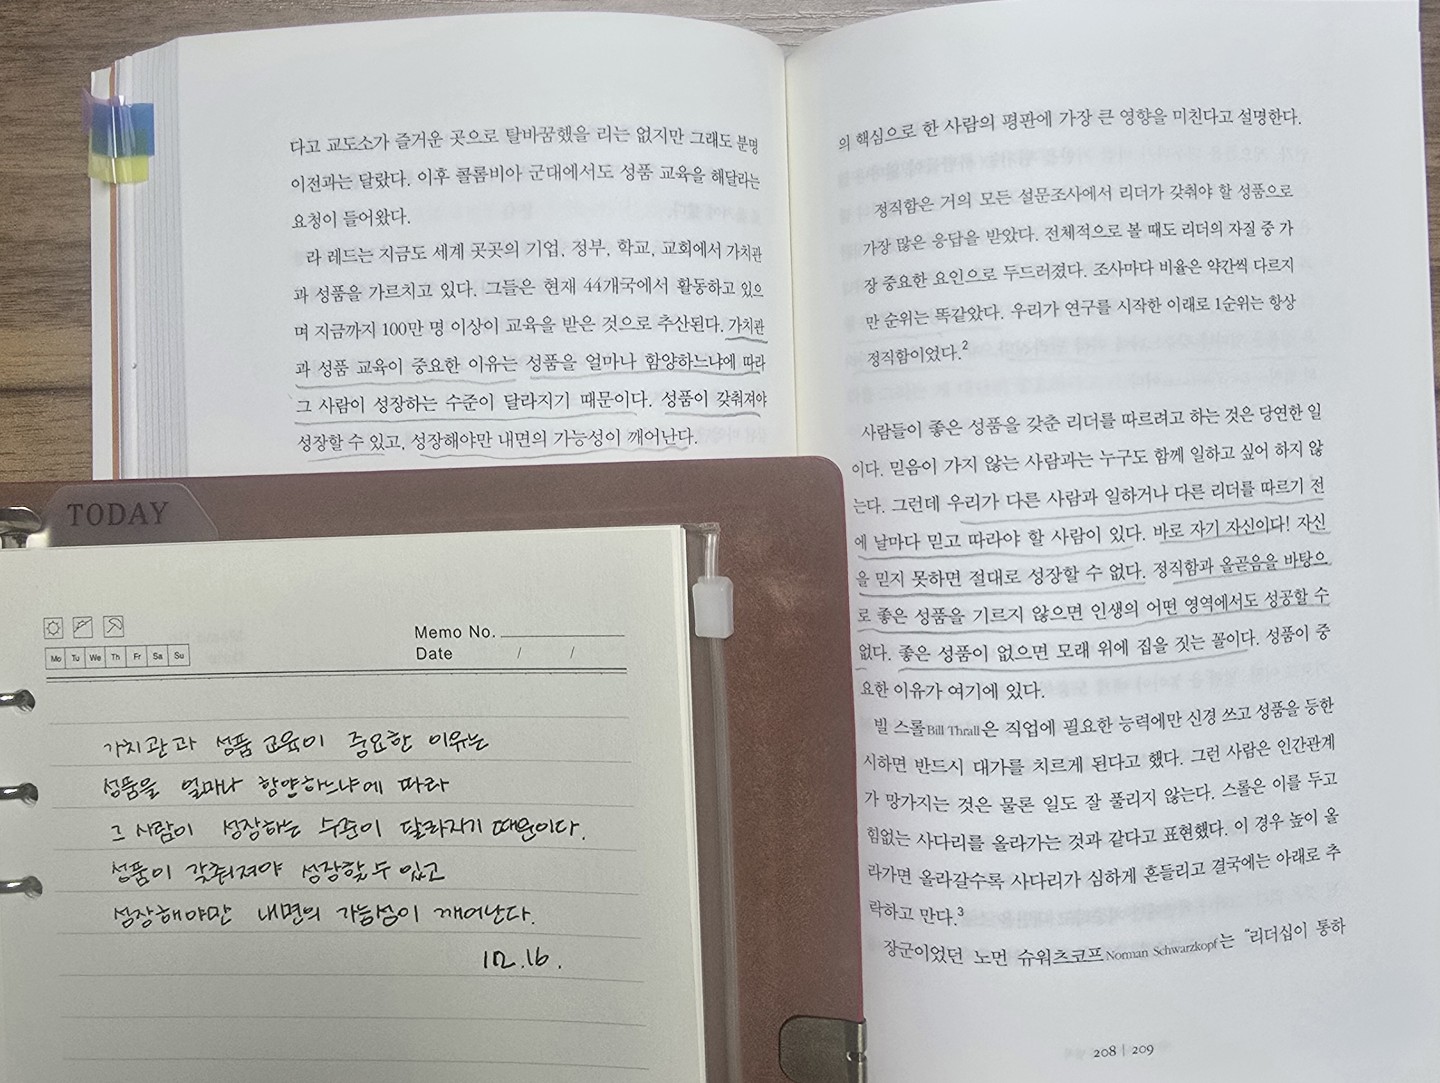 다고 교도소가 즐거운 곳으로 탈바꿈했을 리는 없지만 그래도 분명
이전과는 달랐다. 이후 콜롬비아 군대에서도 성품 교육을 해달라는
요청이 들어왔다.
라 레드는 지금도 세계 곳곳의 기업, 정부, 학교, 교회에서 가치관
과 성품을 가르치고 있다. 그들은 현재 44개국에서 활동하고 있으
며 지금까지 100만 명 이상이 교육을 받은 것으로 추산된다. 가치관
과 성품 교육이 중요한 이유는 성품을 얼마나 함양하느냐에 따라
그 사람이 성장하는 수준이 달라지기 때문이다. 성품이 갖춰져야
성장할 수 있고, 성장해야만 내면의 가능성이 깨어난다.
TODAY
Memo No.
Date / /
Mo Tu We Th Fr Sa Su
가치관과 성품 교육이 중요한 이유는
성품을 얼마나 함양하느냐에 따라
그 사람이 성장하는 수준이 달라지기 때문이다.
성품이 갖춰져야 성장할 수 있고
성장해야만 내면의 가능성이 깨어난다.
12.16.
의 핵심으로 한 사람의 평판에 가장 큰 영향을 미친다고 설명한다.
정직함은 거의 모든 설문조사에서 리더가 갖춰야 할 성품으로
가장 많은 응답을 받았다. 전체적으로 볼 때도 리더의 자질 중 가
장 중요한 요인으로 두드러졌다. 조사마다 비율은 약간씩 다르지
만 순위는 똑같았다. 우리가 연구를 시작한 이래로 1순위는 항상
정직함이었다.2
사람들이 좋은 성품을 갖춘 리더를 따르려고 하는 것은 당연한 일
이다. 믿음이 가지 않는 사람과는 누구도 함께 일하고 싶어 하지 않
는다. 그런데 우리가 다른 사람과 일하거나 다른 리더를 따르기 전
에 날마다 믿고 따라야 할 사람이 있다. 바로 자기 자신이다! 자신
을 믿지 못하면 절대로 성장할 수 없다. 정직함과 올곧음을 바탕으
로 좋은 성품을 기르지 않으면 인생의 어떤 영역에서도 성공할 수
없다. 좋은 성품이 없으면 모래 위에 집을 짓는 꼴이다. 성품이 중
요한 이유가 여기에 있다.
빌 스롤Bill Thrall은 직업에 필요한 능력에만 신경 쓰고 성품을 등한
시하면 반드시 대가를 치르게 된다고 했다. 그런 사람은 인간관계
가 망가지는 것은 물론 일도 잘 풀리지 않는다. 스롤은 이를 두고
힘없는 사다리를 올라가는 것과 같다고 표현했다. 이 경우 높이 올
라가면 올라갈수록 사다리가 심하게 흔들리고 결국에는 아래로 추
락하고 만다.3
장군이었던 노먼 슈워츠코프Norman Schwarzkopf는 “리더십이 통하
208 | 209